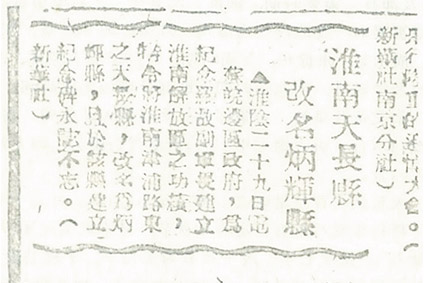 大會。(
新華社南京分社)
淮南天長縣
改名炳輝縣
▲淮陰二十九日電
蘇皖邊區政府,爲
紀念羅故副軍長建立
淮南解放區之功績,
特令將淮南津浦路東
之天長縣,改名爲炳
輝縣,且於該縣建立
紀念碑永誌不忘。(
新華社)